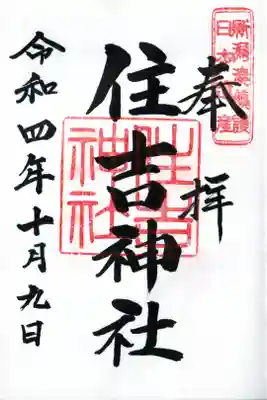 奉拝
住吉神社
住吉神社
令和四年十月九日